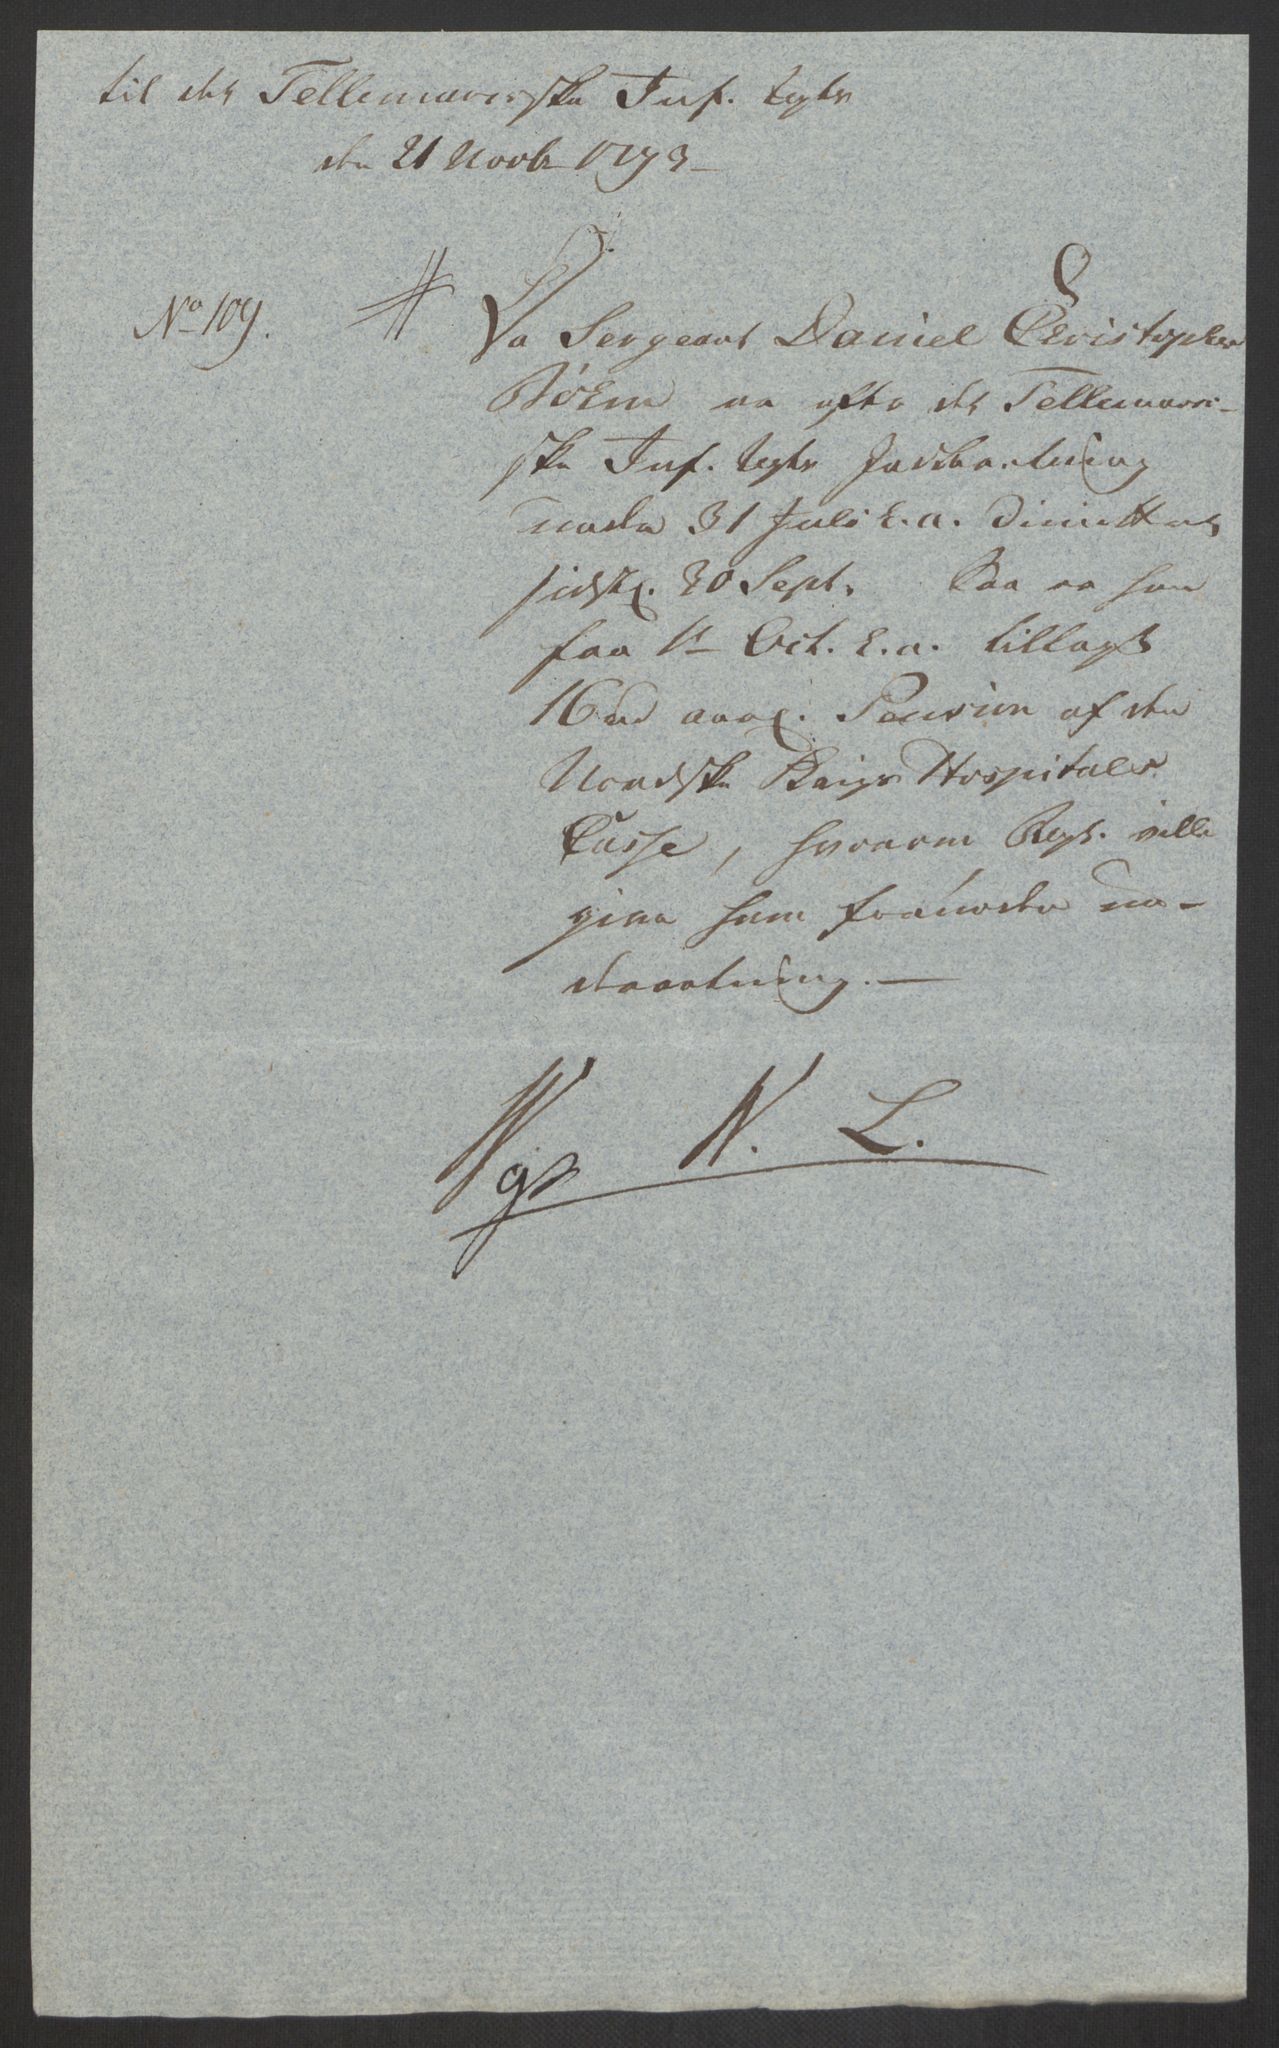 til det Tellemarcische Inf. Regts
den 21 Novbr 1793
No 109.
Da Sergeant Daniel Christopher
Böhm er efter det Tellemarci-
ske Inf. Regts Forestilling
under 31 Juli h. a. dimitteret
sidstl. 30 Sept. Saa er ham
fra 1st Oct. h. a. tillagt
16 rd aarl. Pension af den
Nordske Krigs Hospitals
Casse, hvorom Regt. ville
give ham fornøden un-
derretning.
N. L.